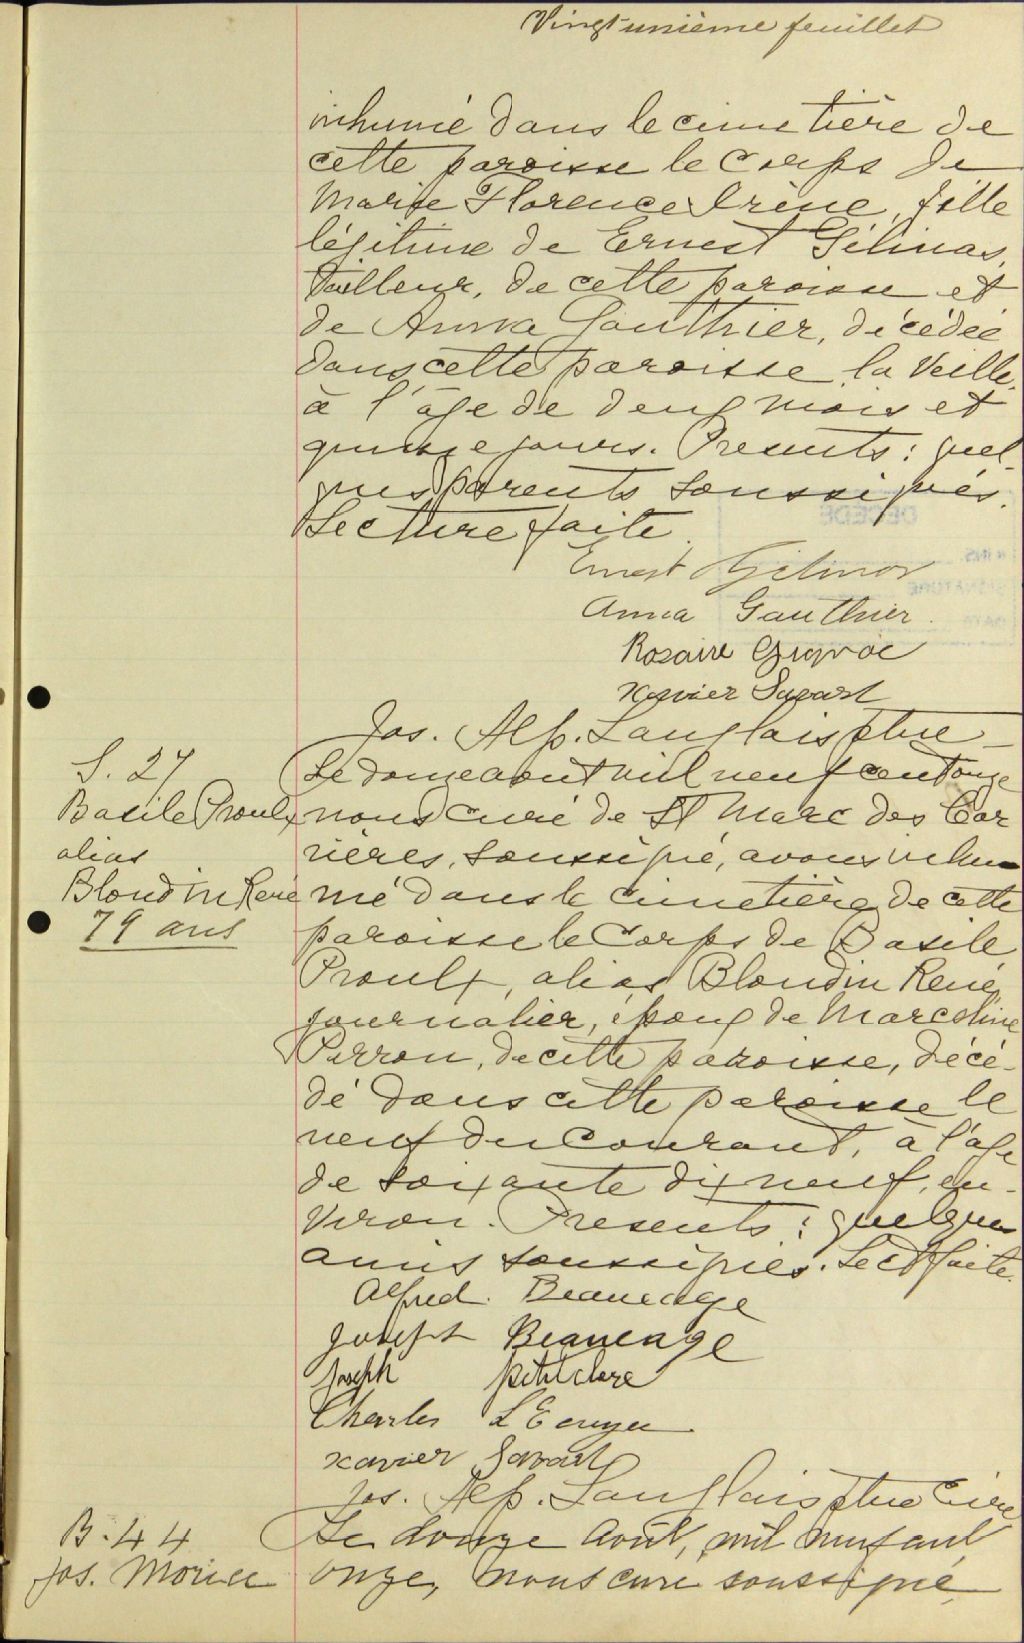 Vingt unième feuillet
inhumé dans le cimetière de
cette paroisse le Corps de
Marie Florence Irène, fille
légitime de Ernest Gélinas,
tailleur, de cette paroisse et
de Anna Gauthier, décédée
dans cette paroisse la veille,
à l'âge de deux mois et
quinze jours. Presents : quel-
ques parents soussignés.
Lecture faite.
DÉCÉDÉ
Ernest Gélinas
Anna Gauthier.
Rosaire Gignac
Xavier Savard
Jos. Alp. Langlais ptre
S. 27
Basile Proulx
alias
Blondin René
79 ans
Le douze août mil neuf cent onze
nous curé de St Marc des Car
rières, soussigné, avons inhu
mé dans le cimetière de cette
paroisse le Corps de Basile
Proulx, alias Blondin René,
journalier, époux de Marcelline
Perron, de cette paroisse, décé-
dé dans cette paroisse le
neuf du courant, à l'âge
de soixante dix neuf, en-
viron. Presents : quelques
amis soussignés. Lect faite.
Alfred. Beaucage
Joseph Beaucage
Joseph petitclerc
Charles L'Ecuyer
Xavier Savard
Jos. Alp. Langlais ptre Curé
B. 44
Jos. Morice
Le douze Août, mil neuf cent
onze, Nous curé soussigné,